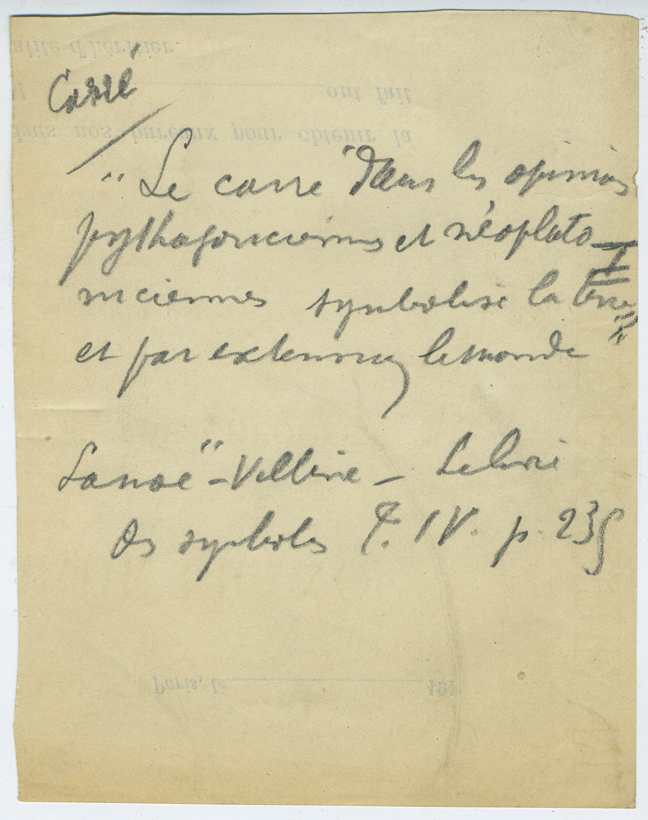 Carré
"Le carré dans les opinions
pythagoriciennes et néoplato
niciennes symbolise la terre
et par extension le monde"
Lanoë-Villène - Le livre
des symboles T. IV. p. 235
Paris, le 191